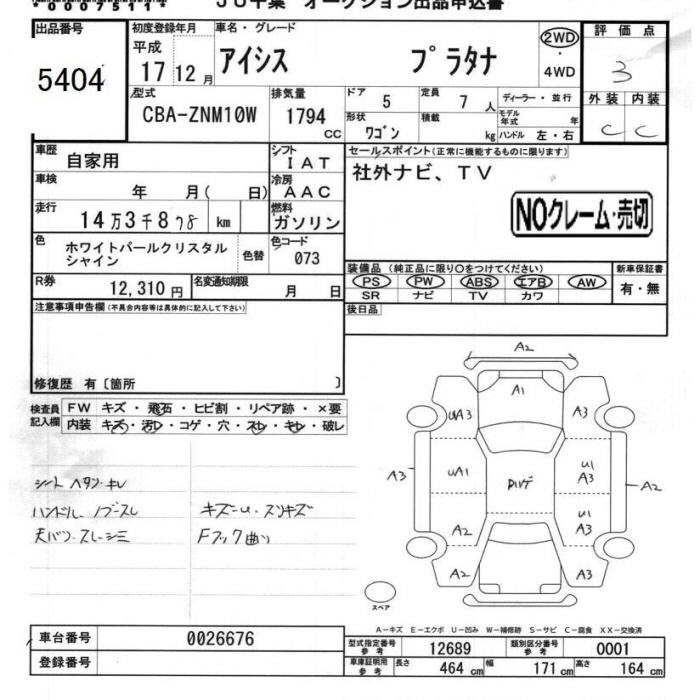 00075114
JU千葉 オークション出品申込書
出品番号 5404
初度登録年月 平成 17 12月
車名・グレード アイシス プラタナ
2WD・4WD
評価点 3
外装 C 内装 C
型式 CBA-ZNM10W
排気量 1794 CC
ドア 5 定員 7人 ディーラー・並行
形状 ワゴン 積載 kg モデル年式 年 ハンドル 左・右
車歴 自家用
シフト IAT
セールスポイント(正常に機能するものに限ります)
社外ナビ、TV
車検 年 月( 日)
冷房 AAC
NOクレーム・売切
走行 14万3千878 km
燃料 ガソリン
色 ホワイトパールクリスタルシャイン 色替
色コード 073
装備品(純正品に限り○をつけてください) 新車保証書
PS PW ABS エアB AW 有・無
SR ナビ TV カワ
R券 12,310円 名変通知期限 月 日
後日品
注意事項申告欄(不具合内容等は具体的に記入して下さい)
修復歴 有〔箇所 〕
検査員記入欄 FW キズ・飛石・ヒビ割・リペア跡・×要
内装 キズ・汚レ・コゲ・穴・スレ・キレ・破レ
シート ヘタリ・キレ
ハンドル、ノブースレ キズーU・スリキズ
天バリ・スレーシミ Fフック曲り
A2
A1
UA3 A3
A3 UA1 U1 A3 A2
U1 A3
A2
A2 A3
スペア
A-キズ E-エクボ U-凹み W-補修跡 S-サビ C-腐食 XX-交換済
車台番号 0026676
登録番号
型式指定番号 参考 12689 類別区分番号 参考 0001
車庫証明用 参考 長さ 464 cm 幅 171 cm 高さ 164 cm